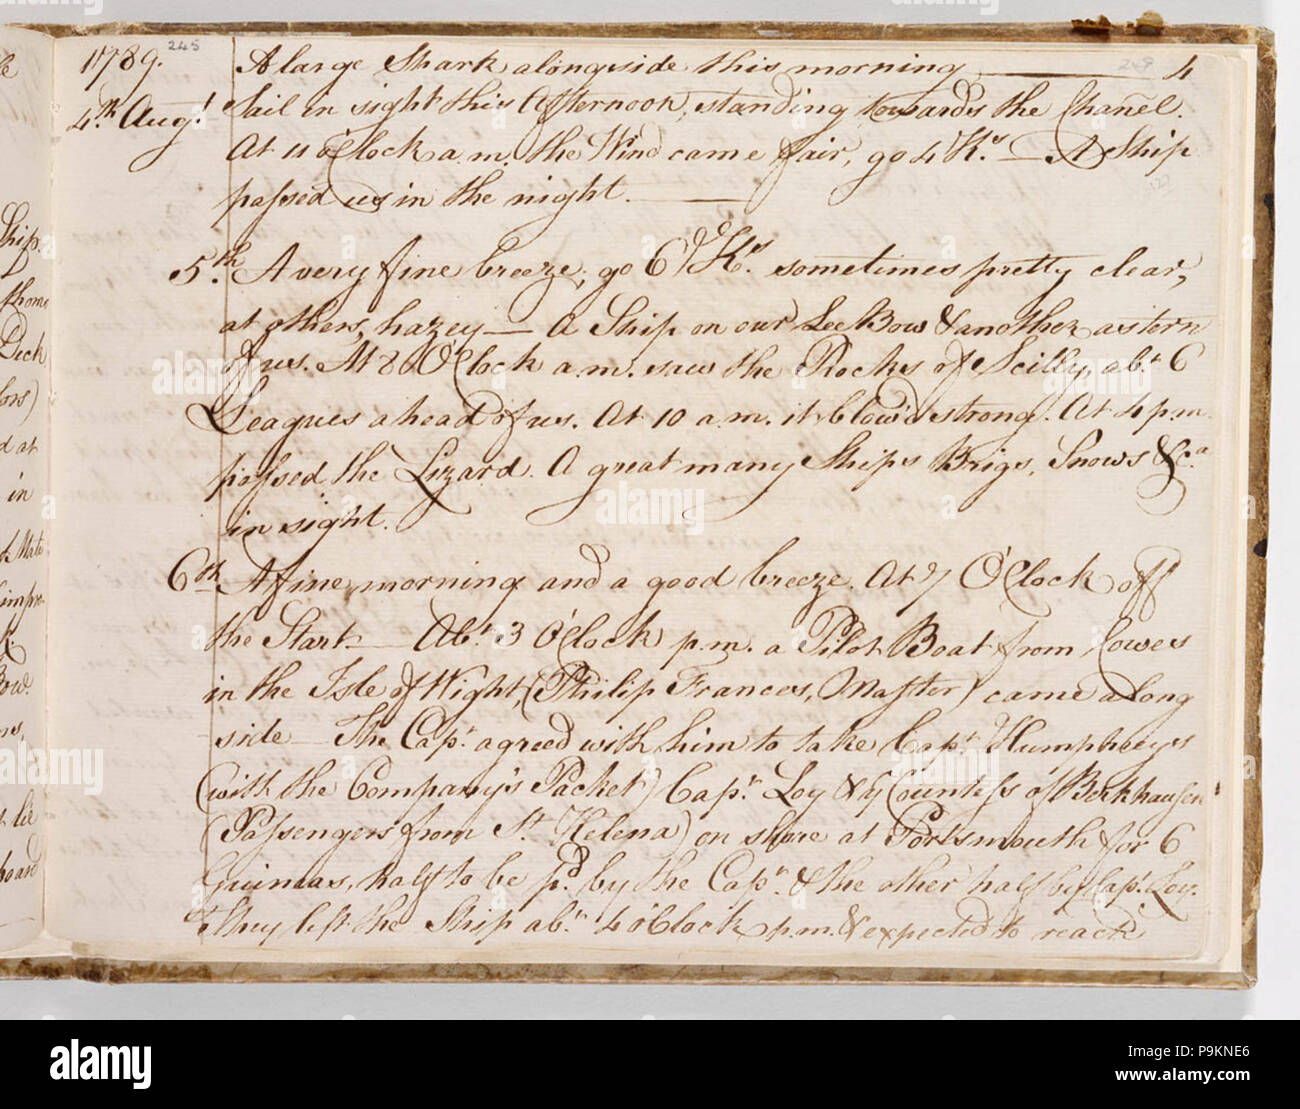 1789. 245 A large Shark alongside this morning 249 4
4th Augt. Sail in sight this Afternoon, standing towards the Chañel.
At 11 o'Clock a.m. the Wind came fair, go 4 Ks. — A Ship
passed us in the night.
5th. A very fine breeze; go 6 Ks. sometimes pretty clear,
at others, hazey — A Ship on our Lee Bow & another astern
of us. At 8 O'Clock a.m. saw the Rocks of Scilly, abt. 6
Leagues ahead of us. At 10 a.m. it blow'd strong. At 4 p.m.
passed the Lizard. A great many Ships Brigs, Snows &ca.
in sight.
6th A fine morning and a good breeze. At 7 O'Clock off
the Start — Abt. 3 O'Clock p.m. a Pilot Boat from Cowes
in the Isle of Wight, (Philip Frances, Master) came along
side — The Capt. agreed with him to take Capt. Humphreys
(with the Company's Packet) Capn. Loy & ye Countess of Berkhausen
(Passengers from St. Helena) on shore at Portsmouth for 6
Guineas, half to be pd. by the Capn. & the other half by Capt. Loy.
They left the Ship abt. 4 o'Clock p.m. & expected to reach
Ship.
Deck
d at
in
Mate
Bow.
lie
board
alamy
a
alamy
Image ID: P9KNE6
www.alamy.com